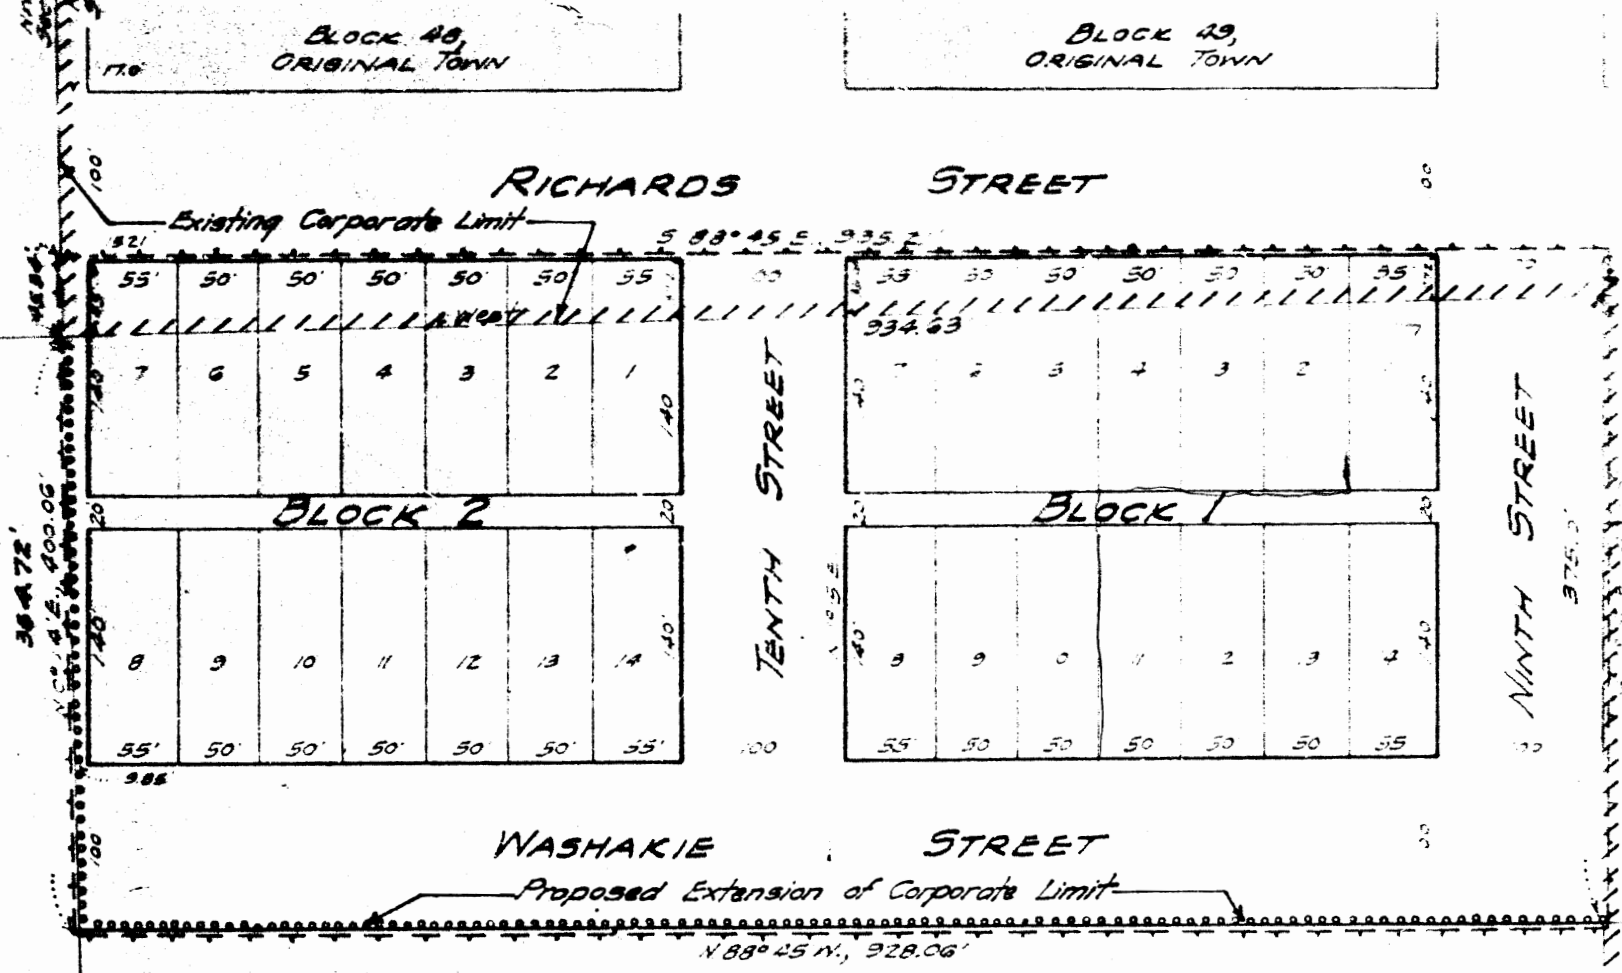 BLOCK 48,
ORIGINAL TOWN
BLOCK 49,
ORIGINAL TOWN
17.0'
100'
RICHARDS STREET
00
Existing Corporate Limit
S 88° 45 E., 935.2
55' 50' 50' 50' 50' 50' 55
55 50 50 50' 50 50' 55
West
934.63
7 6 5 4 3 2 1
7 5 4 3 2
140'
140
40
TENTH STREET
NINTH STREET
BLOCK 2
BLOCK 1
20
20
20
20
364.72'
400.06'
375.0'
140'
140'
140'
140'
8 9 10 11 12 13 14
9 11 2
55' 50' 50' 50' 50' 50' 55'
100
55 50 50 50 50 50 55
9.85
100
WASHAKIE STREET
00
Proposed Extension of Corporate Limit
N 88° 45 W., 928.06'